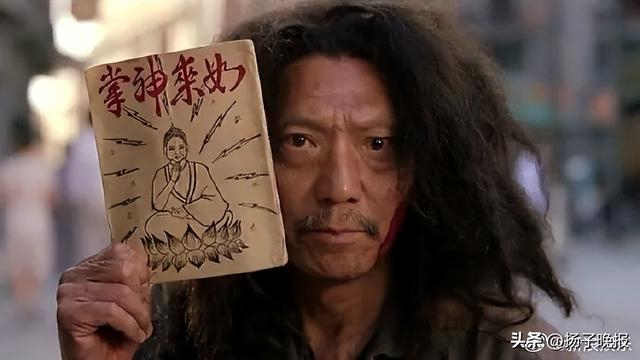 如來神掌
头条 @扬子晚报